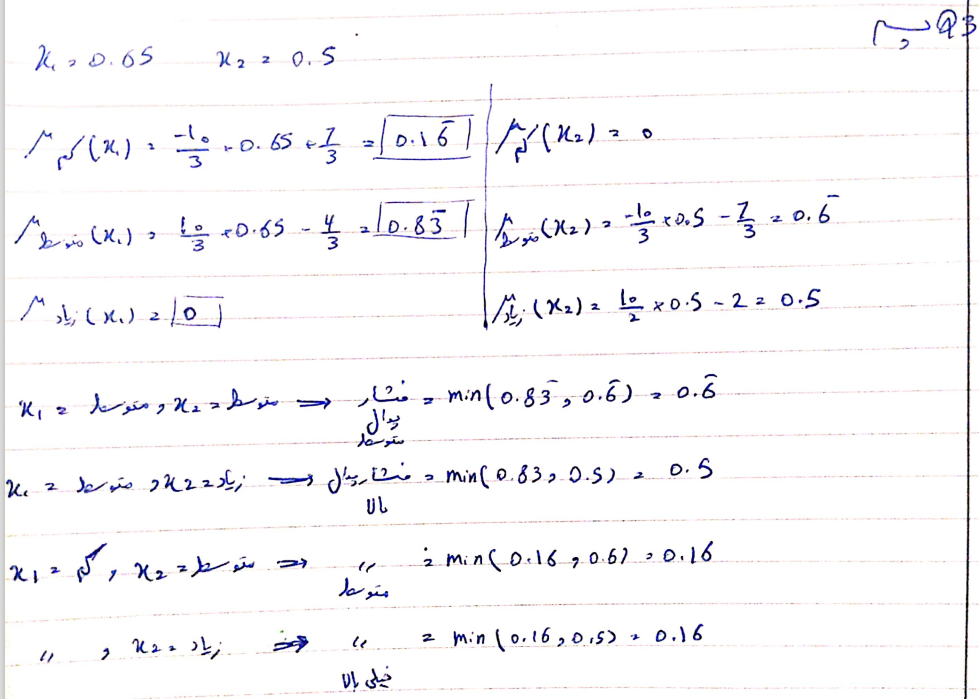 Q3
x₁ = 0.65 x₂ = 0.5
μ کم (x₁) = -10/3 × 0.65 + 7/3 = 0.16̄ μ کم (x₂) = 0
μ متوسط (x₁) = 10/3 × 0.65 - 4/3 = 0.83̄ μ متوسط (x₂) = -10/3 × 0.5 - 7/3 = 0.6̄
μ زیاد (x₁) = 0 μ زیاد (x₂) = 10/2 × 0.5 - 2 = 0.5
x₁ = متوسط و x₂ = متوسط ⇒ فشار پدال متوسط = min(0.83̄, 0.6̄) = 0.6̄
x₁ = متوسط و x₂ = زیاد ⇒ فشار پدال بالا = min(0.83, 0.5) = 0.5
x₁ = کم و x₂ = متوسط ⇒ " متوسط = min(0.16, 0.6) = 0.16
" و x₂ = زیاد ⇒ " خیلی بالا = min(0.16, 0.5) = 0.16